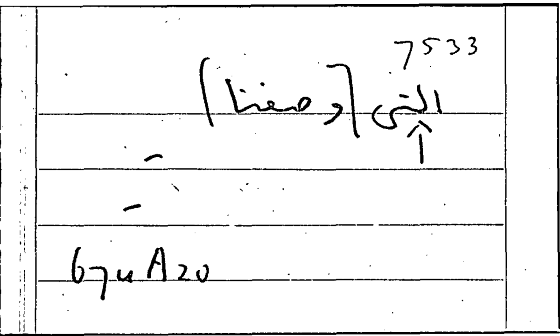 7533
التى [وصفنا]
67u A20